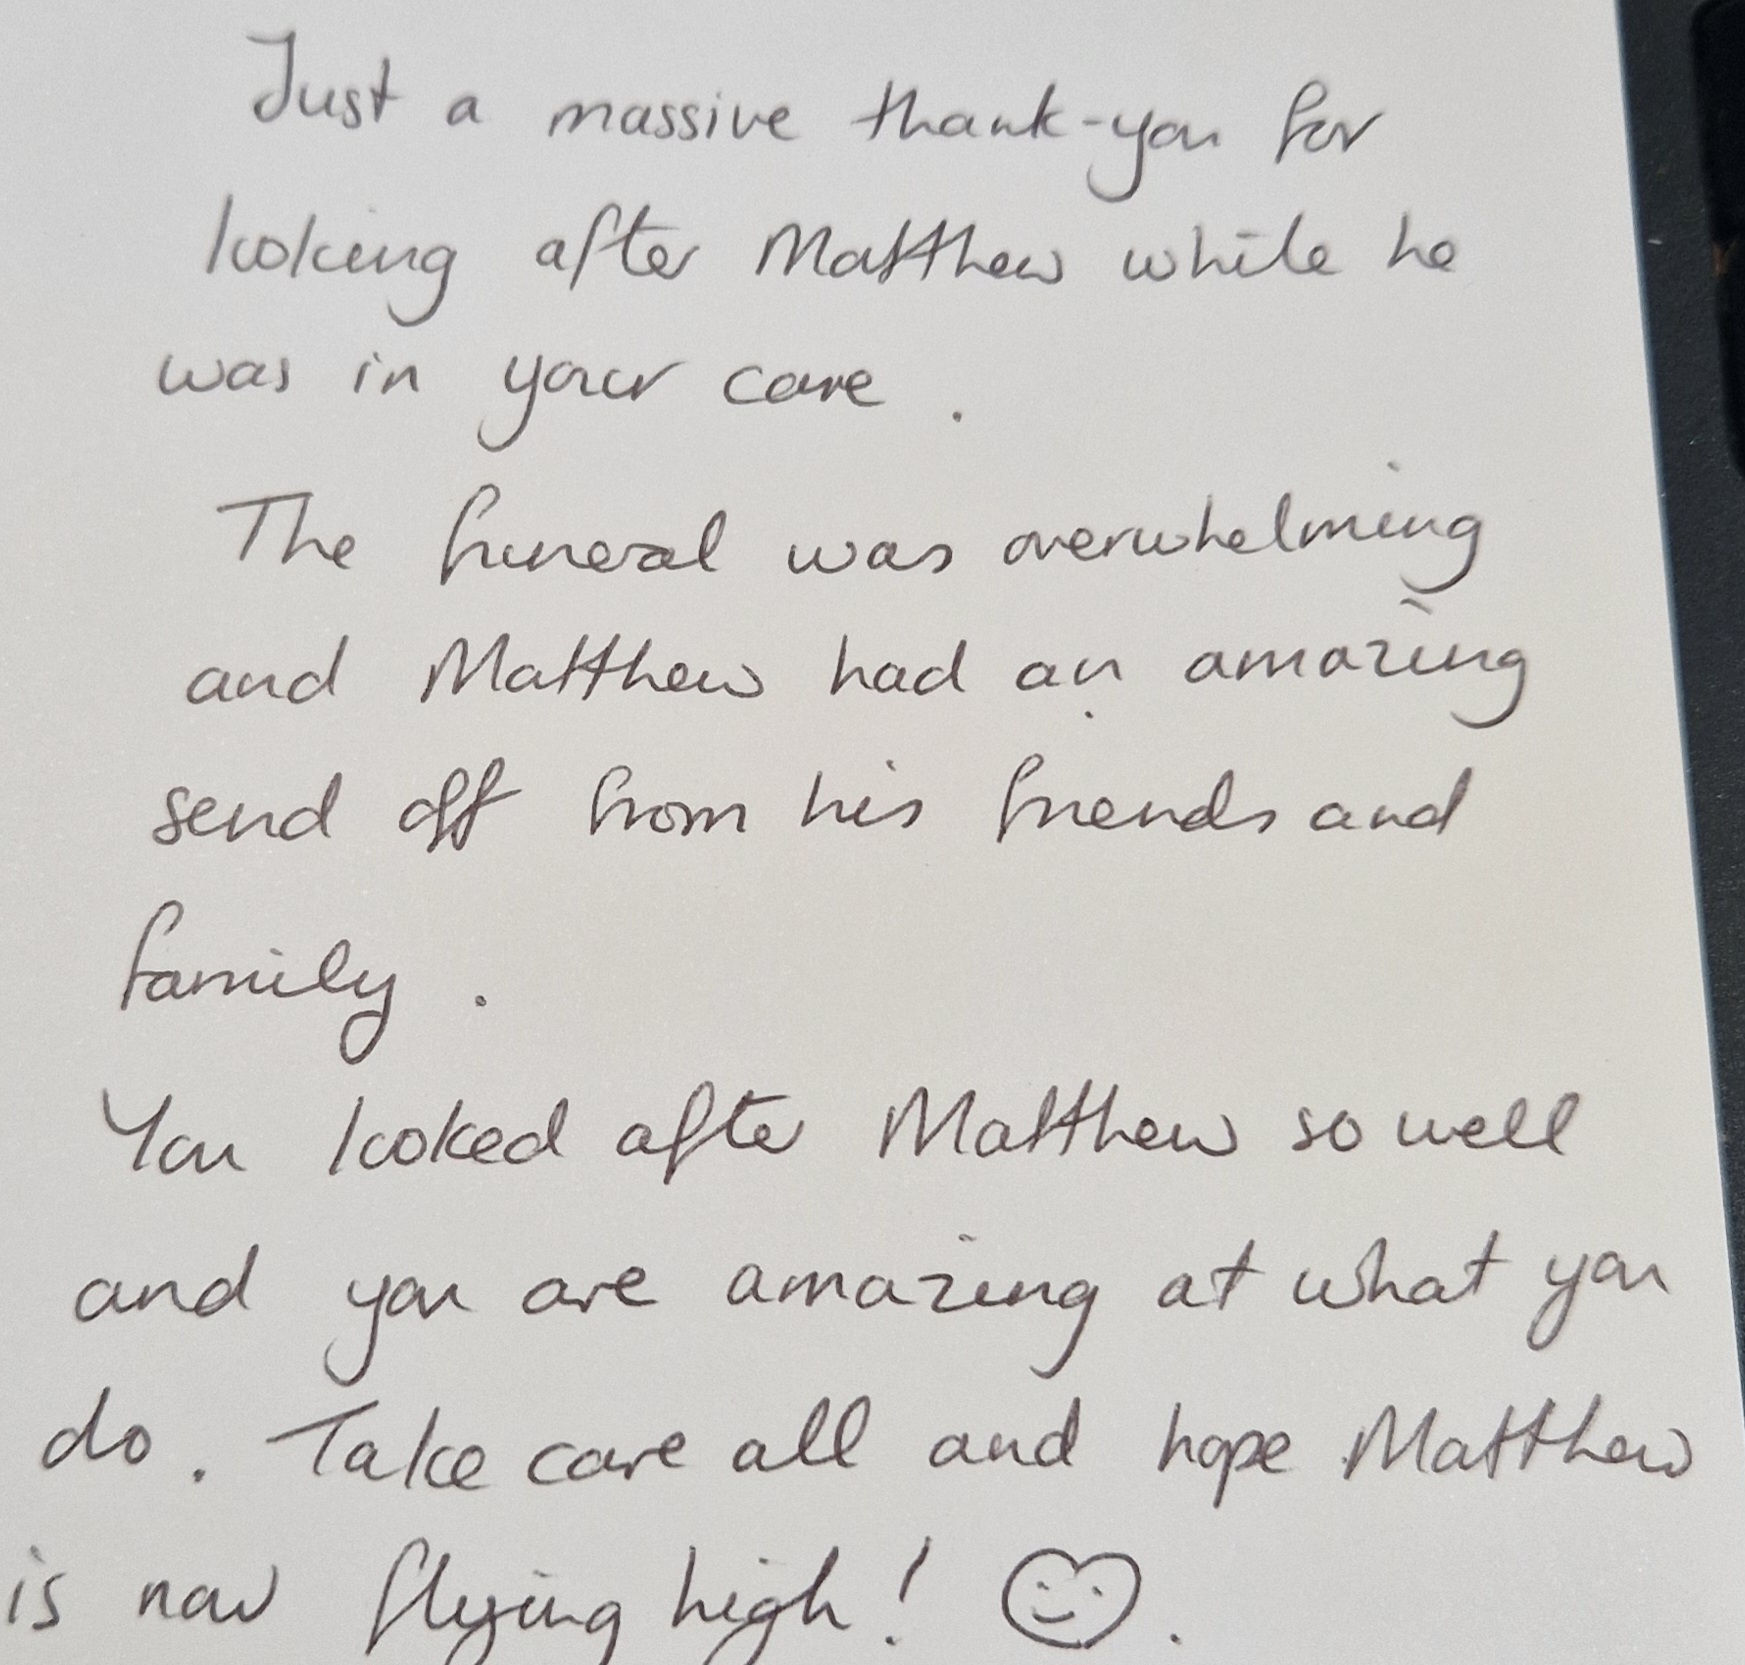 Just a massive thank-you for
looking after Matthew while he
was in your care.
The funeral was overwhelming
and Matthew had an amazing
send off from his friends and
family.
You looked after Matthew so well
and you are amazing at what you
do. Take care all and hope Matthew
is now flying high!